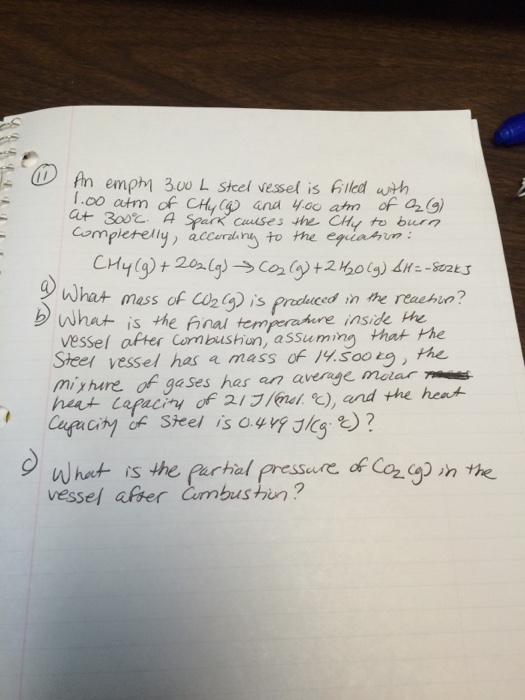 11 An empty 3.00 L steel vessel is filled with
1.00 atm of CH4(g) and 4.00 atm of O2(g)
at 300°C. A spark causes the CH4 to burn
completelly, according to the equation:
CH4(g) + 2O2(g) → CO2(g) + 2H2O(g) ΔH = -802kJ
a) What mass of CO2(g) is produced in the reaction?
b) What is the final temperature inside the
vessel after combustion, assuming that the
steel vessel has a mass of 14.500kg, the
mixture of gases has an average molar
heat capacity of 21 J/(mol.°C), and the heat
capacity of steel is 0.449 J/(g.°C)?
c) What is the partial pressure of CO2(g) in the
vessel after combustion?